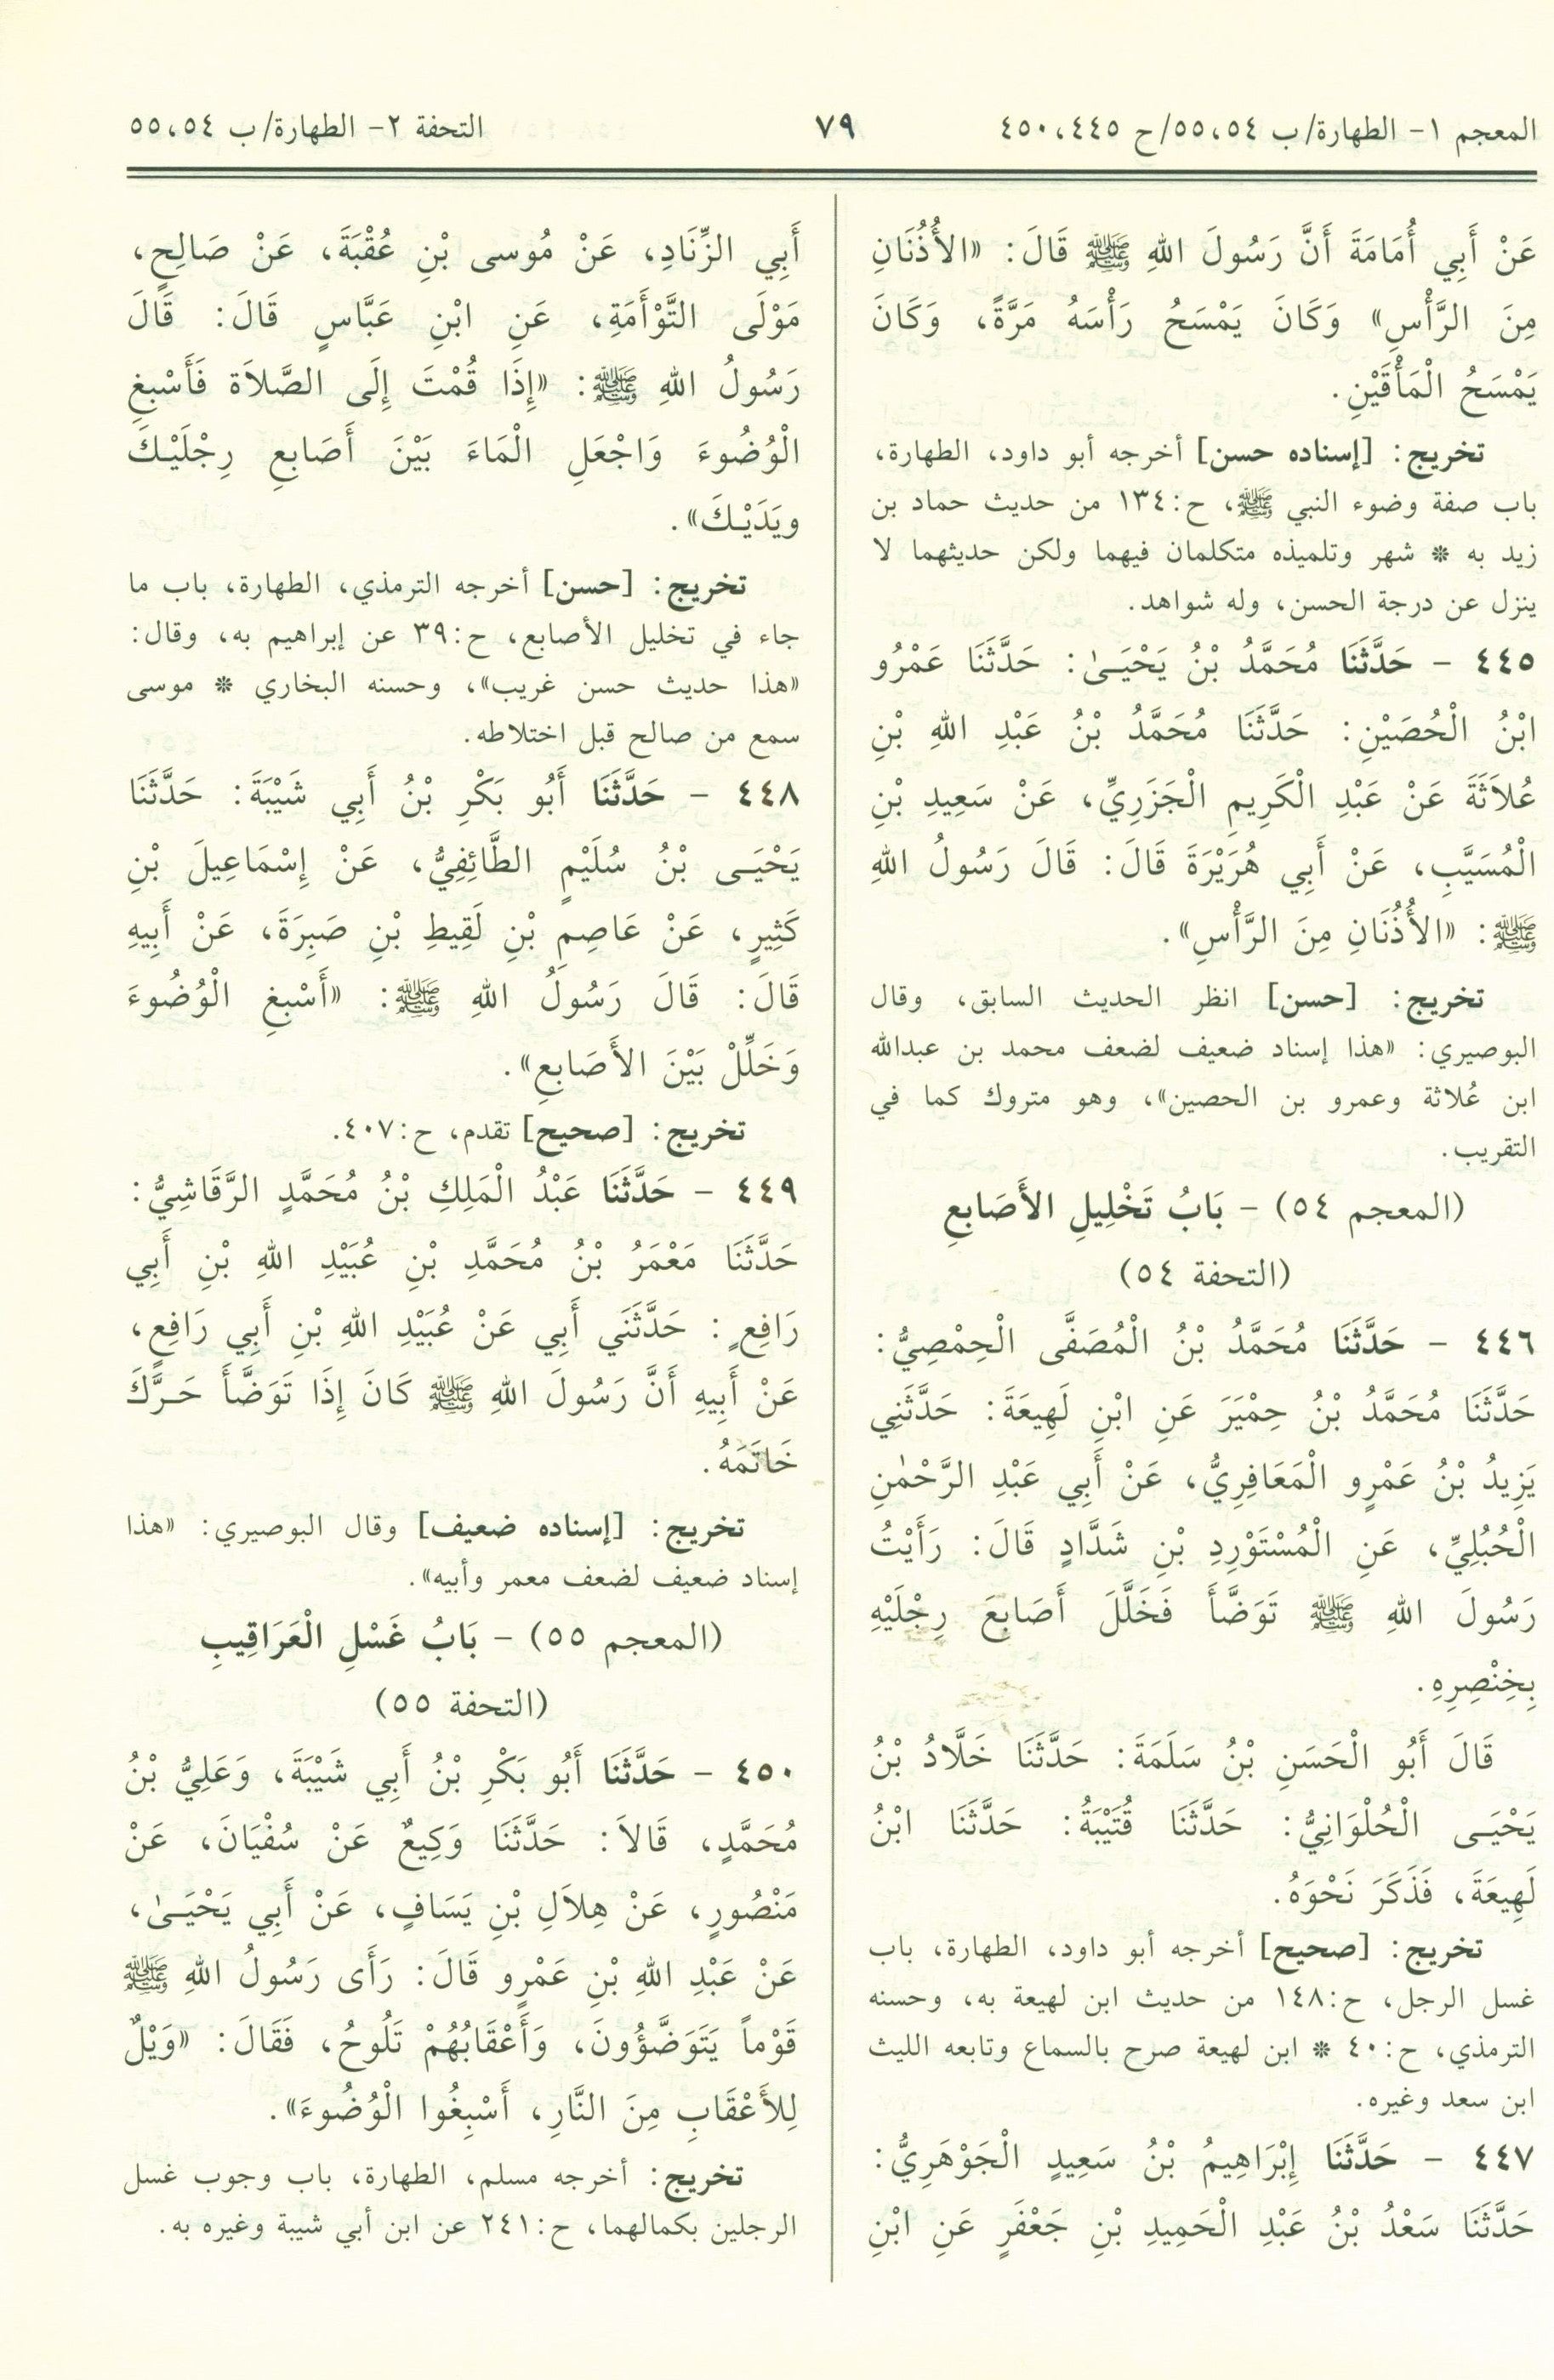 المعجم ١- الطهارة/ ب ٥٥،٥٤/ ح ٤٥٠،٤٤٥
٧٩
التحفة ٢- الطهارة/ ب ٥٥،٥٤
عَنْ أَبِي أُمَامَةَ أَنَّ رَسُولَ اللهِ ﷺ قَالَ: «الأُذُنَانِ
مِنَ الرَّأْسِ» وَكَانَ يَمْسَحُ رَأْسَهُ مَرَّةً، وَكَانَ
يَمْسَحُ الْمَأْقَيْنِ.
تخريج: [إسناده حسن] أخرجه أبو داود، الطهارة،
باب صفة وضوء النبي ﷺ، ح:١٣٤ من حديث حماد بن
زيد به * شهر وتلميذه متكلمان فيهما ولكن حديثهما لا
ينزل عن درجة الحسن، وله شواهد.
٤٤٥ - حَدَّثَنَا مُحَمَّدُ بْنُ يَحْيَـىٰ: حَدَّثَنَا عَمْرُو
ابْنُ الْحُصَيْنِ: حَدَّثَنَا مُحَمَّدُ بْنُ عَبْدِ اللهِ بْنِ
عُلاَثَةَ عَنْ عَبْدِ الْكَرِيمِ الْجَزَرِيِّ، عَنْ سَعِيدِ بْنِ
الْمُسَيَّبِ، عَنْ أَبِي هُرَيْرَةَ قَالَ: قَالَ رَسُولُ اللهِ
ﷺ: «الأُذُنَانِ مِنَ الرَّأْسِ».
تخريج: [حسن] انظر الحديث السابق، وقال
البوصيري: «هذا إسناد ضعيف لضعف محمد بن عبدالله
ابن عُلاثة وعمرو بن الحصين»، وهو متروك كما في
التقريب.
(المعجم ٥٤) - بَابُ تَخْلِيلِ الأَصَابِعِ
(التحفة ٥٤)
٤٤٦ - حَدَّثَنَا مُحَمَّدُ بْنُ الْمُصَفَّى الْحِمْصِيُّ:
حَدَّثَنَا مُحَمَّدُ بْنُ حِمْيَرَ عَنِ ابْنِ لَهِيعَةَ: حَدَّثَنِي
يَزِيدُ بْنُ عَمْرٍو الْمَعَافِرِيُّ، عَنْ أَبِي عَبْدِ الرَّحْمٰنِ
الْحُبُلِيِّ، عَنِ الْمُسْتَوْرِدِ بْنِ شَدَّادٍ قَالَ: رَأَيْتُ
رَسُولَ اللهِ ﷺ تَوَضَّأَ فَخَلَّلَ أَصَابِعَ رِجْلَيْهِ
بِخِنْصِرِهِ.
قَالَ أَبُو الْحَسَنِ بْنُ سَلَمَةَ: حَدَّثَنَا خَلَّادُ بْنُ
يَحْيَـى الْحُلْوَانِيُّ: حَدَّثَنَا قُتَيْبَةُ: حَدَّثَنَا ابْنُ
لَهِيعَةَ، فَذَكَرَ نَحْوَهُ.
تخريج: [صحيح] أخرجه أبو داود، الطهارة، باب
غسل الرجل، ح:١٤٨ من حديث ابن لهيعة به، وحسنه
الترمذي، ح:٤٠ * ابن لهيعة صرح بالسماع وتابعه الليث
ابن سعد وغيره.
٤٤٧ - حَدَّثَنَا إِبْرَاهِيمُ بْنُ سَعِيدٍ الْجَوْهَرِيُّ:
حَدَّثَنَا سَعْدُ بْنُ عَبْدِ الْحَمِيدِ بْنِ جَعْفَرٍ عَنِ ابْنِ
أَبِي الزِّنَادِ، عَنْ مُوسى بْنِ عُقْبَةَ، عَنْ صَالِحٍ،
مَوْلَى التَّوْأَمَةِ، عَنِ ابْنِ عَبَّاسٍ قَالَ: قَالَ
رَسُولُ اللهِ ﷺ: «إِذَا قُمْتَ إِلَى الصَّلاَة فَأَسْبِغِ
الْوُضُوءَ وَاجْعَلِ الْمَاءَ بَيْنَ أَصَابِعِ رِجْلَيْـكَ
ويَدَيْـكَ».
تخريج: [حسن] أخرجه الترمذي، الطهارة، باب ما
جاء في تخليل الأصابع، ح:٣٩ عن إبراهيم به، وقال:
«هذا حديث حسن غريب»، وحسنه البخاري * موسى
سمع من صالح قبل اختلاطه.
٤٤٨ - حَدَّثَنَا أَبُو بَكْرِ بْنُ أَبِي شَيْبَةَ: حَدَّثَنَا
يَحْيَـى بْنُ سُلَيْمٍ الطَّائِفِيُّ، عَنْ إِسْمَاعِيلَ بْنِ
كَثِيرٍ، عَنْ عَاصِمِ بْنِ لَقِيطِ بْنِ صَبِرَةَ، عَنْ أَبِيهِ
قَالَ: قَالَ رَسُولُ اللهِ ﷺ: «أَسْبِغِ الْوُضُوءَ
وَخَلِّلْ بَيْنَ الأَصَابِعِ».
تخريج: [صحيح] تقدم، ح:٤٠٧.
٤٤٩ - حَدَّثَنَا عَبْدُ الْمَلِكِ بْنُ مُحَمَّدٍ الرَّقَاشِيُّ:
حَدَّثَنَا مَعْمَرُ بْنُ مُحَمَّدِ بْنِ عُبَيْدِ اللهِ بْنِ أَبِي
رَافِعٍ: حَدَّثَنَي أَبِي عَنْ عُبَيْدِ اللهِ بْنِ أَبِي رَافِعٍ،
عَنْ أَبِيهِ أَنَّ رَسُولَ اللهِ ﷺ كَانَ إِذَا تَوَضَّأَ حَـرَّكَ
خَاتَمَهُ.
تخريج: [إسناده ضعيف] وقال البوصيري: «هذا
إسناد ضعيف لضعف معمر وأبيه».
(المعجم ٥٥) - بَابُ غَسْلِ الْعَرَاقِيبِ
(التحفة ٥٥)
٤٥٠ - حَدَّثَنَا أَبُو بَكْرِ بْنُ أَبِي شَيْبَةَ، وَعَلِيُّ بْنُ
مُحَمَّدٍ، قَالاَ: حَدَّثَنَا وَكِيعٌ عَنْ سُفْيَانَ، عَنْ
مَنْصُورٍ، عَنْ هِلاَلِ بْنِ يَسَافٍ، عَنْ أَبِي يَحْيَـىٰ،
عَنْ عَبْدِ اللهِ بْنِ عَمْرٍو قَالَ: رَأَى رَسُولُ اللهِ ﷺ
قَوْماً يَتَوَضَّؤُونَ، وَأَعْقَابُهُمْ تَلُوحُ، فَقَالَ: «وَيْلٌ
لِلأَعْقَابِ مِنَ النَّارِ، أَسْبِغُوا الْوُضُوءَ».
تخريج: أخرجه مسلم، الطهارة، باب وجوب غسل
الرجلين بكمالهما، ح:٢٤١ عن ابن أبي شيبة وغيره به.